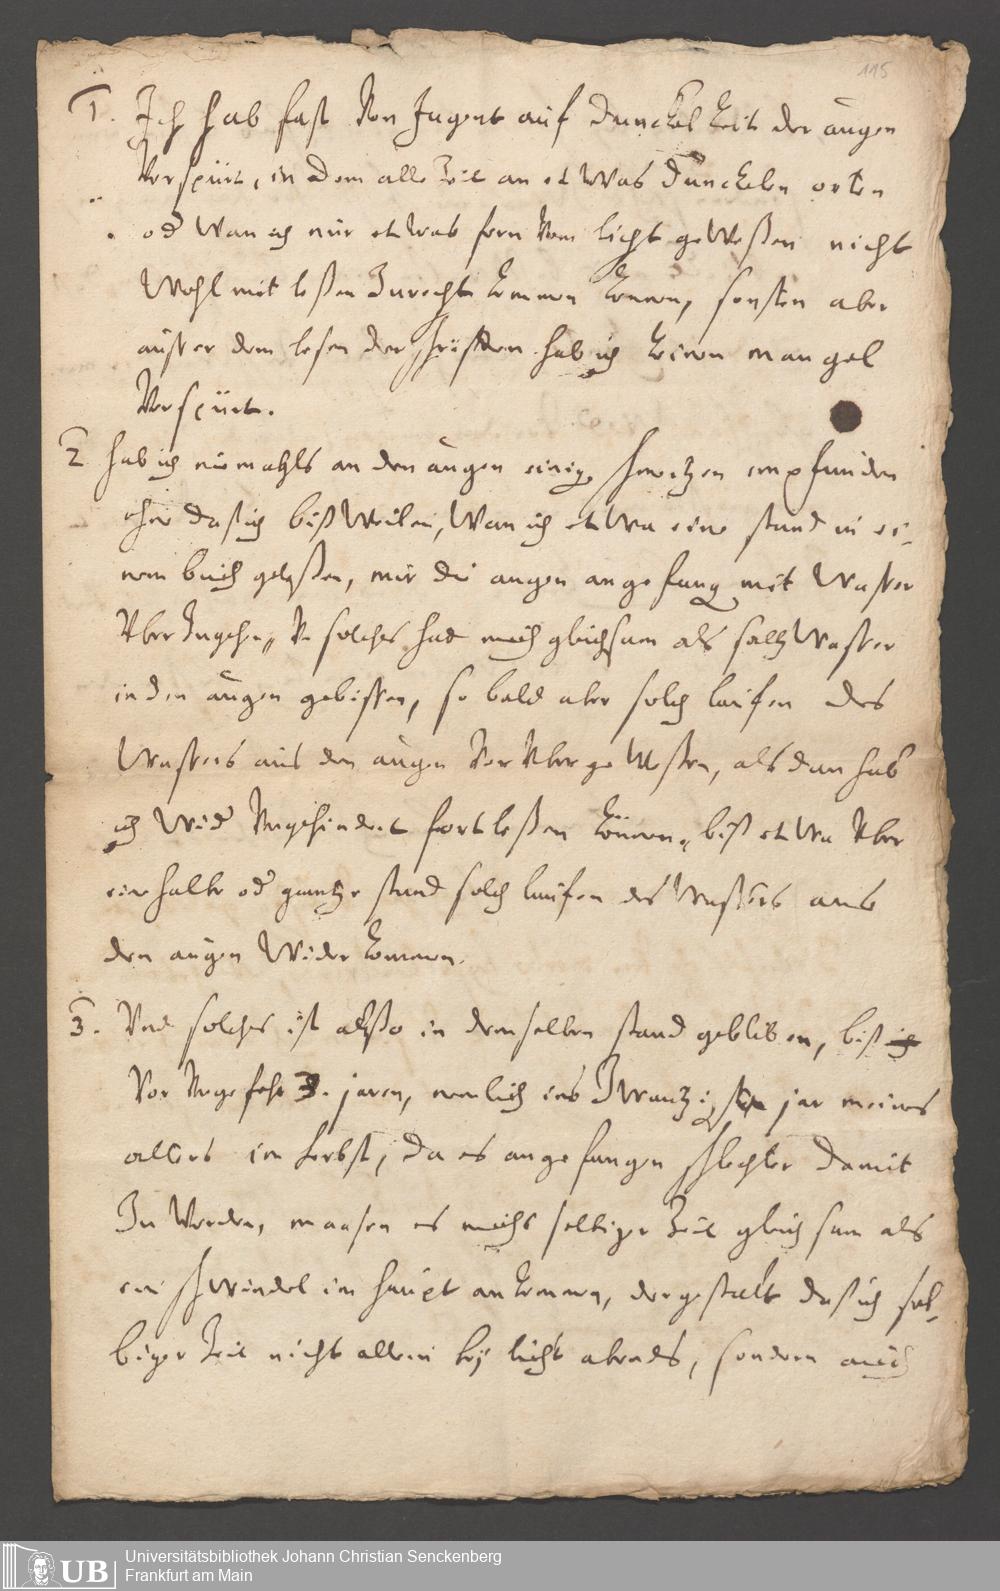 115
1. Ich hab fast Von Jugent auf dunckelheit der augen
Verspürt, in dem alle Zeit an etwas dunckelen orten
od Wan ich nür etwas fern Vom licht geweßen nicht
Wohl mit leßen Zurecht kommen können, sonsten aber
aüsser dem lesen der schrifften hab ich keinen mangel
Verspürt.
2 hab ich niemahls an den augen einig schmertzen empfunden
ohne daß ich bißweilen, Wan ich etwa eine stund in ei-
nem buch geleßen, mir die augen angefang mit Wasser
Vber Zugehen, V solches hat mich gleichsam als saltz Wasser
in den augen gebissen, so bald aber solch laufen des
Wassers aus den augen Vorüber geweßen, als dan hab
ich Wid Vngehindert fortleßen können, biß etwa Vber
eine halbe od gantze stund solch laufen des Wassers aus
den augen Wider kommen.
3. Vnd solches ist alßo in demselben stand gebliben, biß ich
Vor Vngefehr 3. jaren, nemlich ins Zwantzigste jar meines
alters im herbst, da es angefangen schlechter damit
Zu Werden, maasen es mich selbige Zeit gleichsam als
ein schwindel im haüpt ankommen, dergestalt daß ich sel-
biger Zeit nicht allein bey licht abends, sondern auch
UB
Universitätsbibliothek Johann Christian Senckenberg
Frankfurt am Main